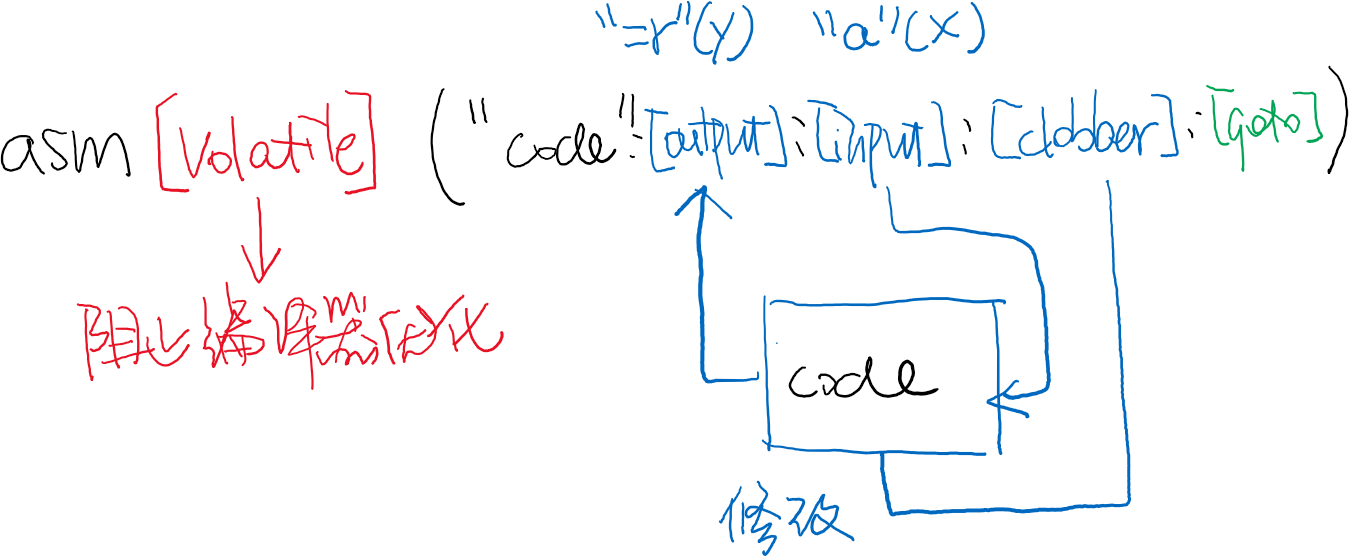 "=r"(y) "a"(x)
asm [volatile] ("code":[output]:[input]:[clobber]:[goto])
阻止编译器优化
code
修改